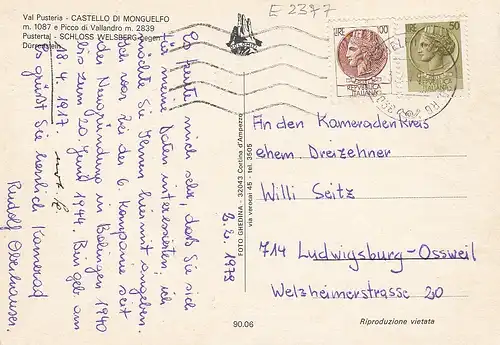 E 2377
Val Pusteria - CASTELLO DI MONGUELFO
m. 1087 e Picco di Vallandro m. 2839
Pustertal - SCHLOSS WELSBERG gegen
Dürrenstein
Es freut mich sehr, daß Sie sich
für meine Daten interessierten, ich
möchte Sie Ihnen hiermit angeben.
Bei war bei der 6. Kompanie seit
der Neugründung in Balingen 1940
bis zum 20. Juni 1944. Bin geb. am
18.4.1917.
Es grüßt Sie herzlich Kamerad
Rudolf Oberhauser.
2.2.1979
FOTO GHEDINA - 32043 Cortina d'Ampezzo
via verocai 45 - tel. 3505
LIRE 100
REPVBBLICA
ITALIANA
LIRE 50
REPVBBLICA
ITALIANA
An den Kameradenkreis
ehem. Dreizehner
Willi Seitz
714 Ludwigsburg-Ossweil
Welzheimerstrasse 20
90.06
Riproduzione vietata